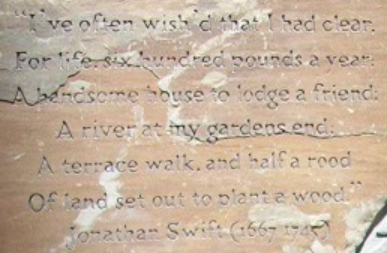 "I've often wish'd that I had clear,
For life, six hundred pounds a year;
A handsome house to lodge a friend;
A river at my gardens end;
A terrace walk, and half a rood
Of land set out to plant a wood."
Jonathan Swift (1667-1745)